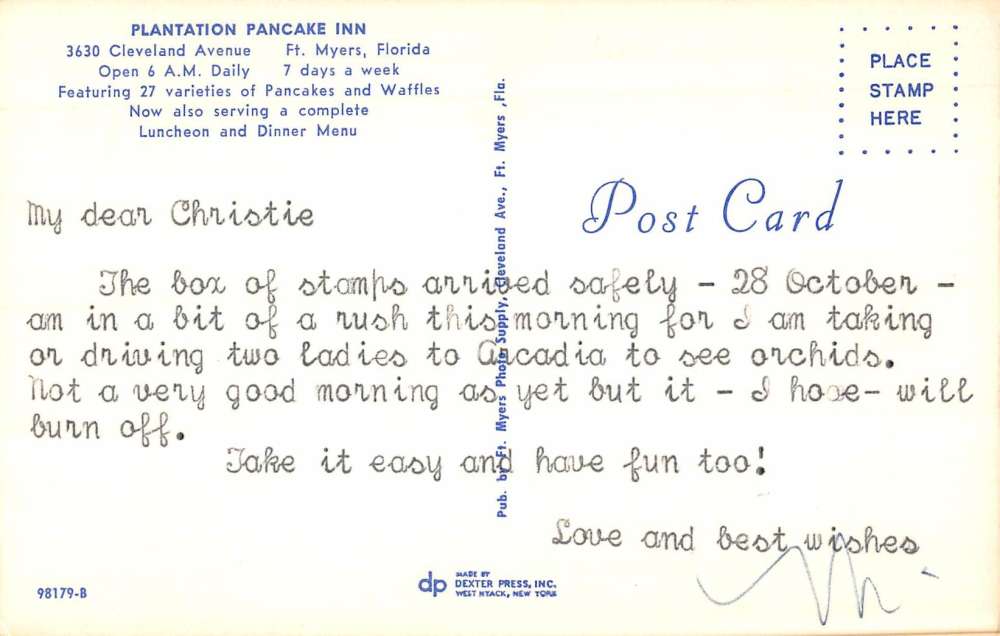 PLANTATION PANCAKE INN
3630 Cleveland Avenue Ft. Myers, Florida
Open 6 A.M. Daily 7 days a week
Featuring 27 varieties of Pancakes and Waffles
Now also serving a complete
Luncheon and Dinner Menu
PLACE
STAMP
HERE
Post Card
My dear Christie
The box of stamps arrived safely - 28 October -
am in a bit of a rush this morning for I am taking
or driving two ladies to Arcadia to see orchids.
Not a very good morning as yet but it - I hope - will
burn off.
Take it easy and have fun too!
Love and best wishes
Pub. by Ft. Myers Photo Supply, Cleveland Ave., Ft. Myers, Fla.
98179-B
dp
MADE BY
DEXTER PRESS, INC.
WEST NYACK, NEW YORK